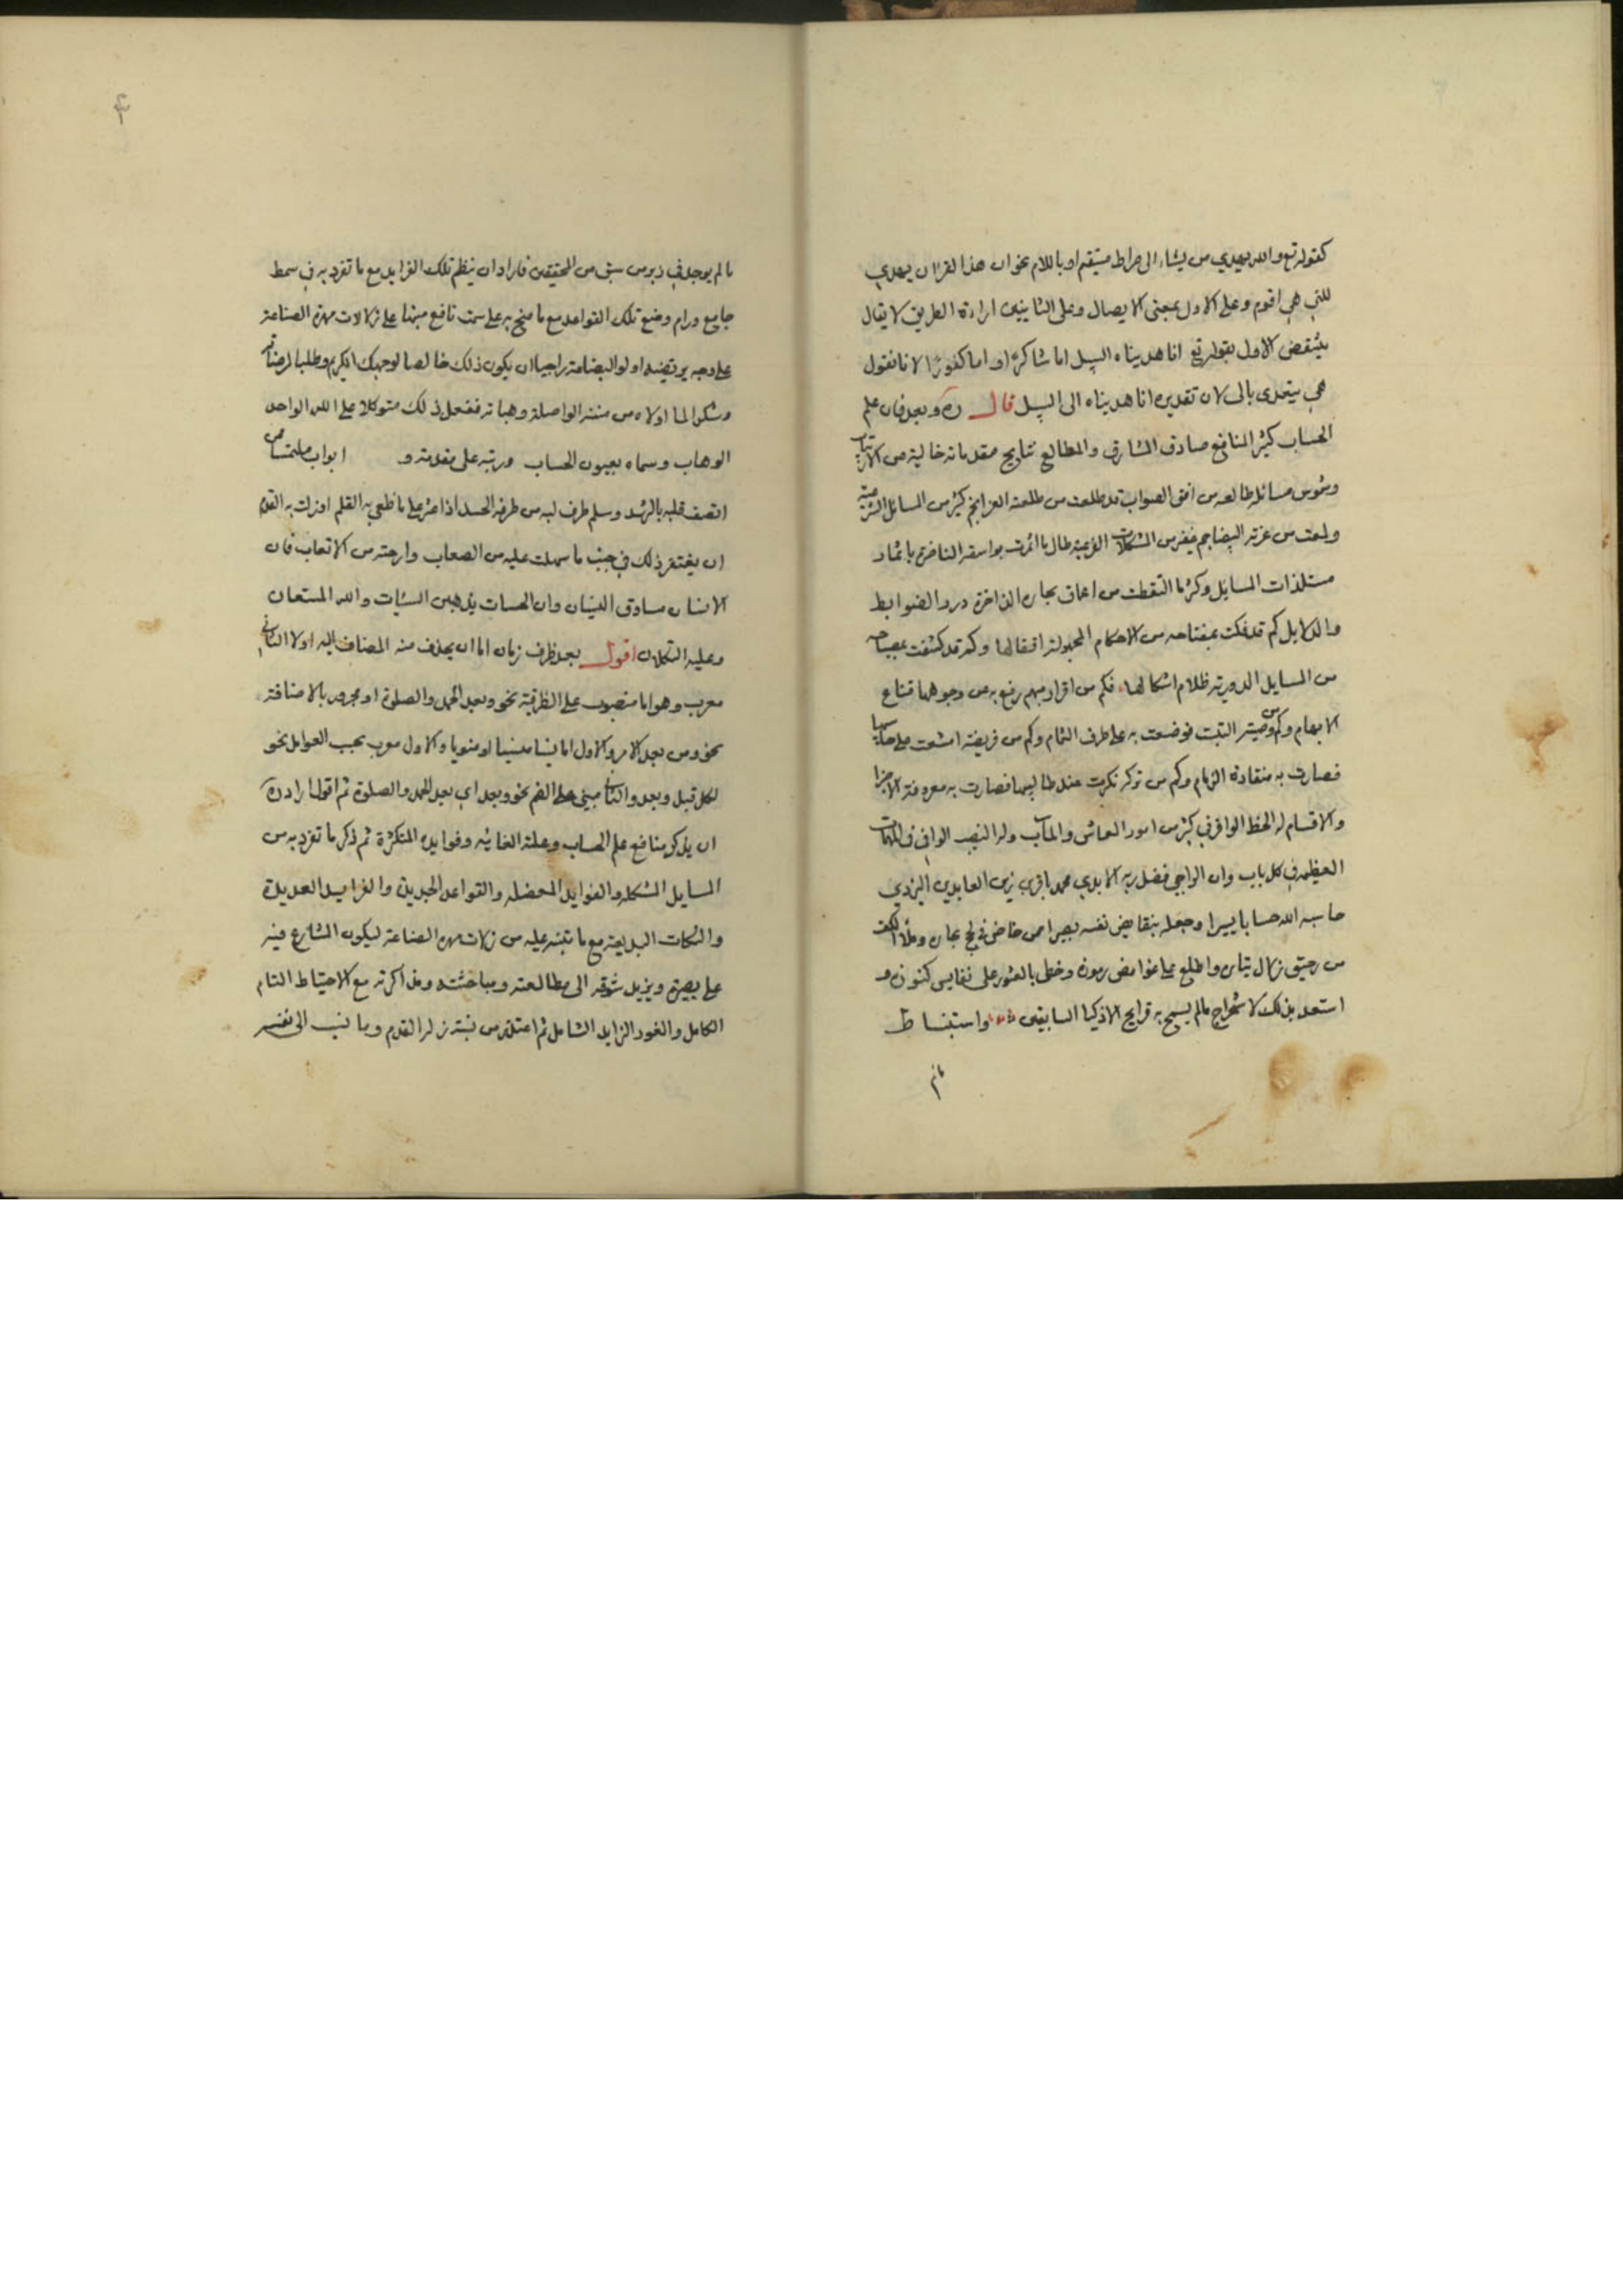 كقوله تع والله يهدي من يشاء الى صراط مستقيم او باللام نحو ان هذا القران يهدي
للتي هي اقوم وعلى الاول بمعنى الايصال وعلى الثانيين اراءة الطريق لا يقال
ينتقض الاول بقوله تع انا هديناه السبيل اما شاكرا او اما كفورا لانا نقول
هي يتعدى بالى لان تقديره انا هديناه الى السبيل قال ره وبعد فان علم
الحساب كثير المنافع صادق المشارق والمطالع نتايج مقدماته خالية من الارتياب
وشموس مسائله طالعه من افق الصواب قد طلعت من طلعته الغرا نجم كثير من المسائل
ولمعت من غرته البيضا جم غفير من المشكلات طال ما اثمرت بواسقه الناضرة باثمار
مستلذات المسايل وكثر ما التقطت من اعماق بحاره الذاخرة درر الضوابط
والدلايل كم قد فكت بمفتاحه من الاحكام المجهولة اقفالها وكم قد كشفت بمصباحه
من المسايل الدورية ظلام اشكالها فكم من اقرار مبهم رفع به عن وجوهها قناع
الابهام وكم من وصية التبت فوضعت به على طرف الثمام وكم من فريضة امتنعت على حسابها
فصارت به منقادة الزمام وكم من تركة نكرت عند طالبيها فصارت به معروفة الاجزا
والاقسام له الحظ الوافر في كثير من امور المعاش والماب وله النصيب الوافي في المهمات
العظيمه في كل باب وان الراجي فضل ربه الابدي محمد باقر بن زين العابدين اليزدي
حاسبه الله حسابا يسيرا وجعله بنقايص نفسه بصيرا ممن خاض في لجج بحاره وملأ الكف
من رحيق زلال واطلع على غوامض رموزه وحظي بالعثور على نفايس كنوزه و
استعد بذلك لاستخراج ما لم يسمح به قرايح الاذكيا السابقين واستنباط
مالم
مالم يوجد في زبر من سبق من المحققين فاراد ان ينظم تلك الفرايد مع ما تفرد به في سمط
جامع ورام وضع تلك القواعد مع ما سنح به على سمت نافع منبها على زلات مهرة الصناعة
على وجه يرتضيه اولو البضاعة راجيا ان يكون ذلك خالصا لوجهك الكريم وطلبا لمرضاته
وشكرا لما اولاه من مننه الواصلة وهباته ففعل ذلك متوكلا على الله الواحد
الوهاب وسماه بعيون الحساب ورتبه على مقدمة و ابواب ملتمسا ممن
اتصف قلبه بالرشد وسلم طرف لبه من طرفة الحسد اذا عثر على ما طغى به القلم او زلت به القدم
ان يغتفر ذلك في جنب ما سهلت عليه من الصعاب وارحته من الاتعاب فان
الانسان مساوق النسيان وان الحسنات يذهبن السيئات والله المستعان
وعليه التكلان اقول بعد ظرف زمان اما ان يحذف منه المضاف اليه اولا الثاني
معرب وهو اما منصوب على الظرفية نحو وبعد الحمد والصلوة او مجرور بالاضافة
نحو ومن بعد الامر والاول اما نسيا منسيا او منويا والاول معرب بحسب العوامل نحو
لكل قبل وبعد والثاني مبني على الضم نحو وبعد اي بعد الحمد والصلوة ثم اقول اراد ره
ان يذكر منافع علم الحساب وعلته الغائيه وفوايده المتكثرة ثم ذكر ما تفرد به من
المسايل المشكله والفوايد المعضله والقواعد الجديدة والفرايد العديدة
والنكات البديعة مع ما تنبه عليه من زلات مهرة الصناعة ليكون الشارع فيه
على بصيرة ويزيد شوقه الى مطالعته ومباحثته ومذاكرته مع الاحتياط التام
الكامل والغور الزايد الشامل ثم اعتذر من نسبة زلة القدم وما نسب الى نفسه